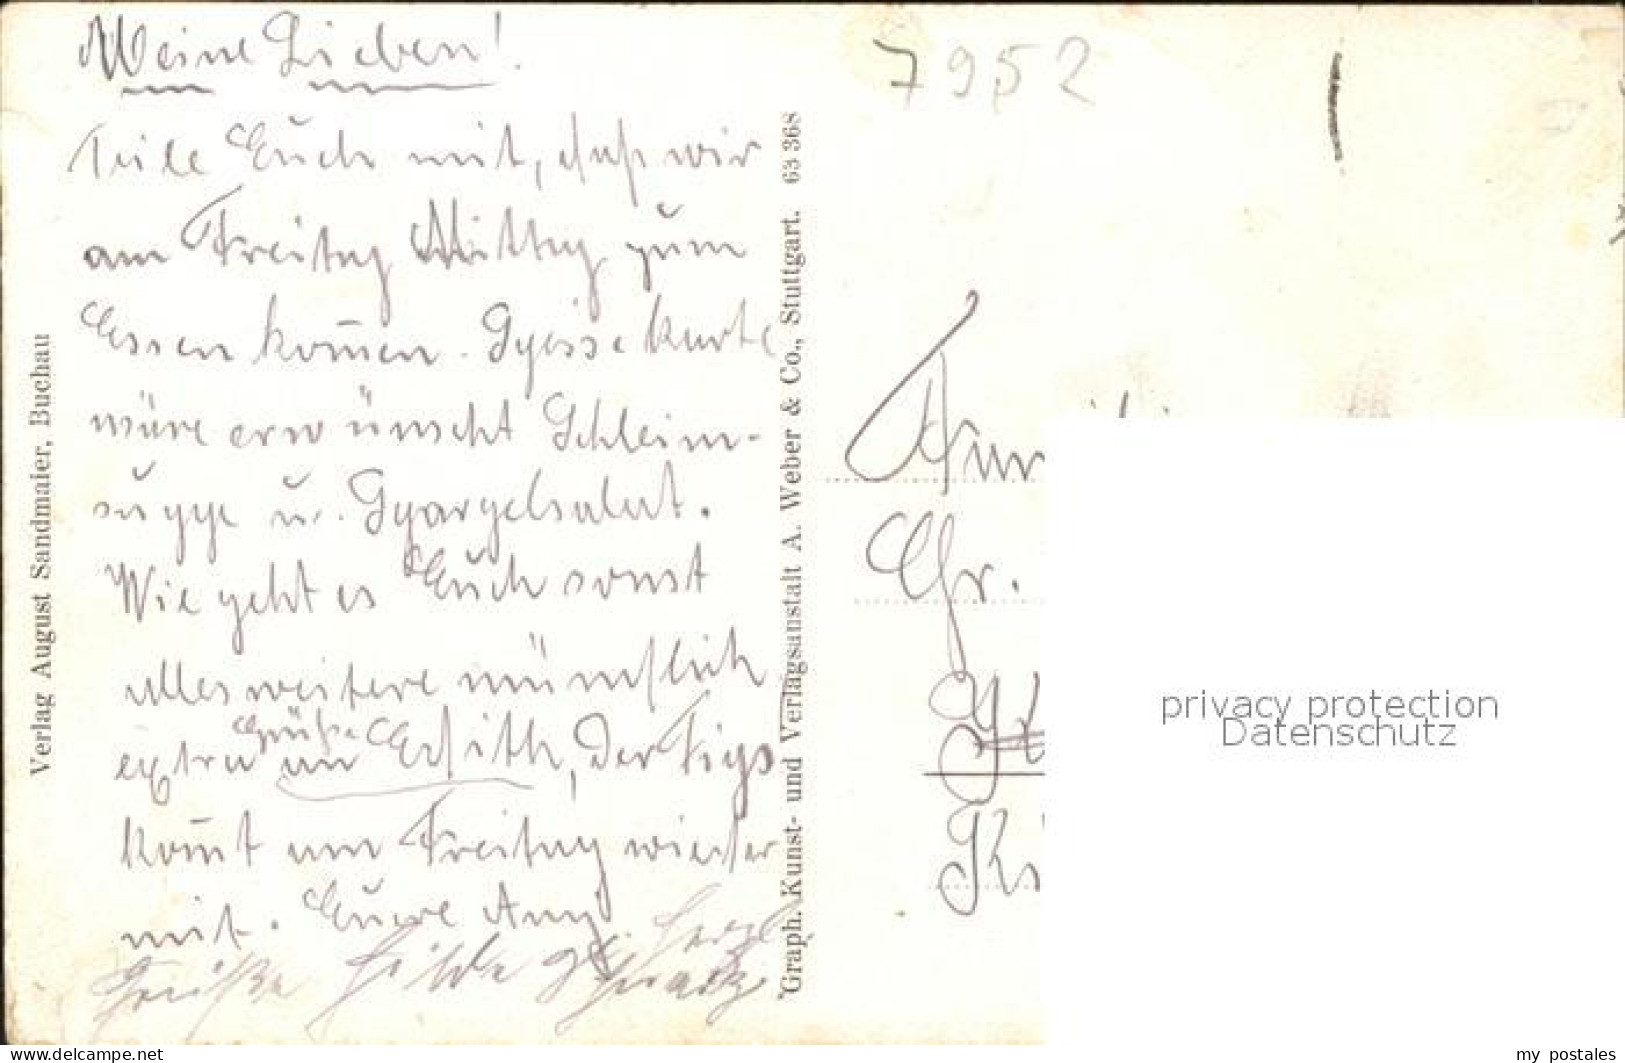 Meine Lieben!
Teile Euch mit, daß wir
am Freitag Mittag zum
Essen kom̄en. Speisekarte
wäre erwünscht Schleim-
suppe u. Spargelsalat.
Wie geht es Euch sonst
alles weitere mündlich
extra Grüße an Edith, Der
kom̄t am Freitag wieder
mit. Eure
Grüße Hilde
Verlag August Sandmaier, Buchau
Graph. Kunst- und Verlagsanstalt A. Weber & Co., Stuttgart. 63 368
7952
Gr.
privacy protection
Datenschutz
https://www.delcampe.net
my_postales